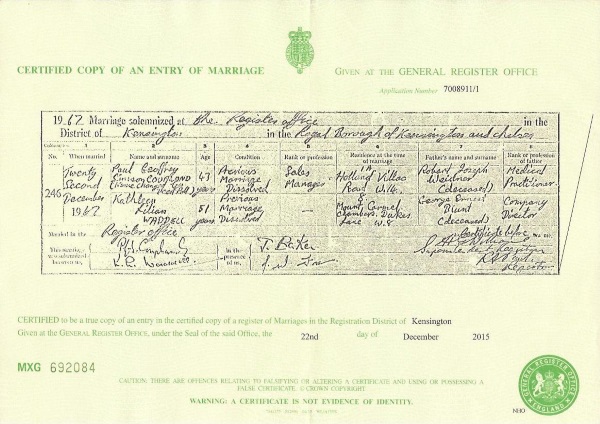 CERTIFIED COPY OF AN ENTRY OF MARRIAGE
GIVEN AT THE GENERAL REGISTER OFFICE
Application Number 7008911/1
1962 Marriage solemnized at The Register office in the
District of Kensington in the Royal Borough of Kensington and Chelsea
1 2 3 4 5 6 7 8
No. When married Name and surname Age Condition Rank or profession Residence at the time of marriage Father's name and surname Rank or profession of father
246 Twenty Second December 1962
Paul Geoffrey 43 years Previous Marriage Dissolved Sales Manager Holland Villas Road W.14. Robert Joseph (deceased) Medical Practitioner
Kathleen Lilian WADDELL 51 years Previous Marriage Dissolved — Mount Carmel Chambers, Dukes Lane W.8 George Ernest Blunt (deceased) Company Director
Married in the Register office
This marriage was solemnized between us,
in the presence of us,
T. Baker
CERTIFIED to be a true copy of an entry in the certified copy of a register of Marriages in the Registration District of Kensington
Given at the GENERAL REGISTER OFFICE, under the Seal of the said Office, the 22nd day of December 2015
MXG 692084
CAUTION: THERE ARE OFFENCES RELATING TO FALSIFYING OR ALTERING A CERTIFICATE AND USING OR POSSESSING A
FALSE CERTIFICATE. ©CROWN COPYRIGHT
WARNING: A CERTIFICATE IS NOT EVIDENCE OF IDENTITY.
GENERAL REGISTER OFFICE
ENGLAND
NHO